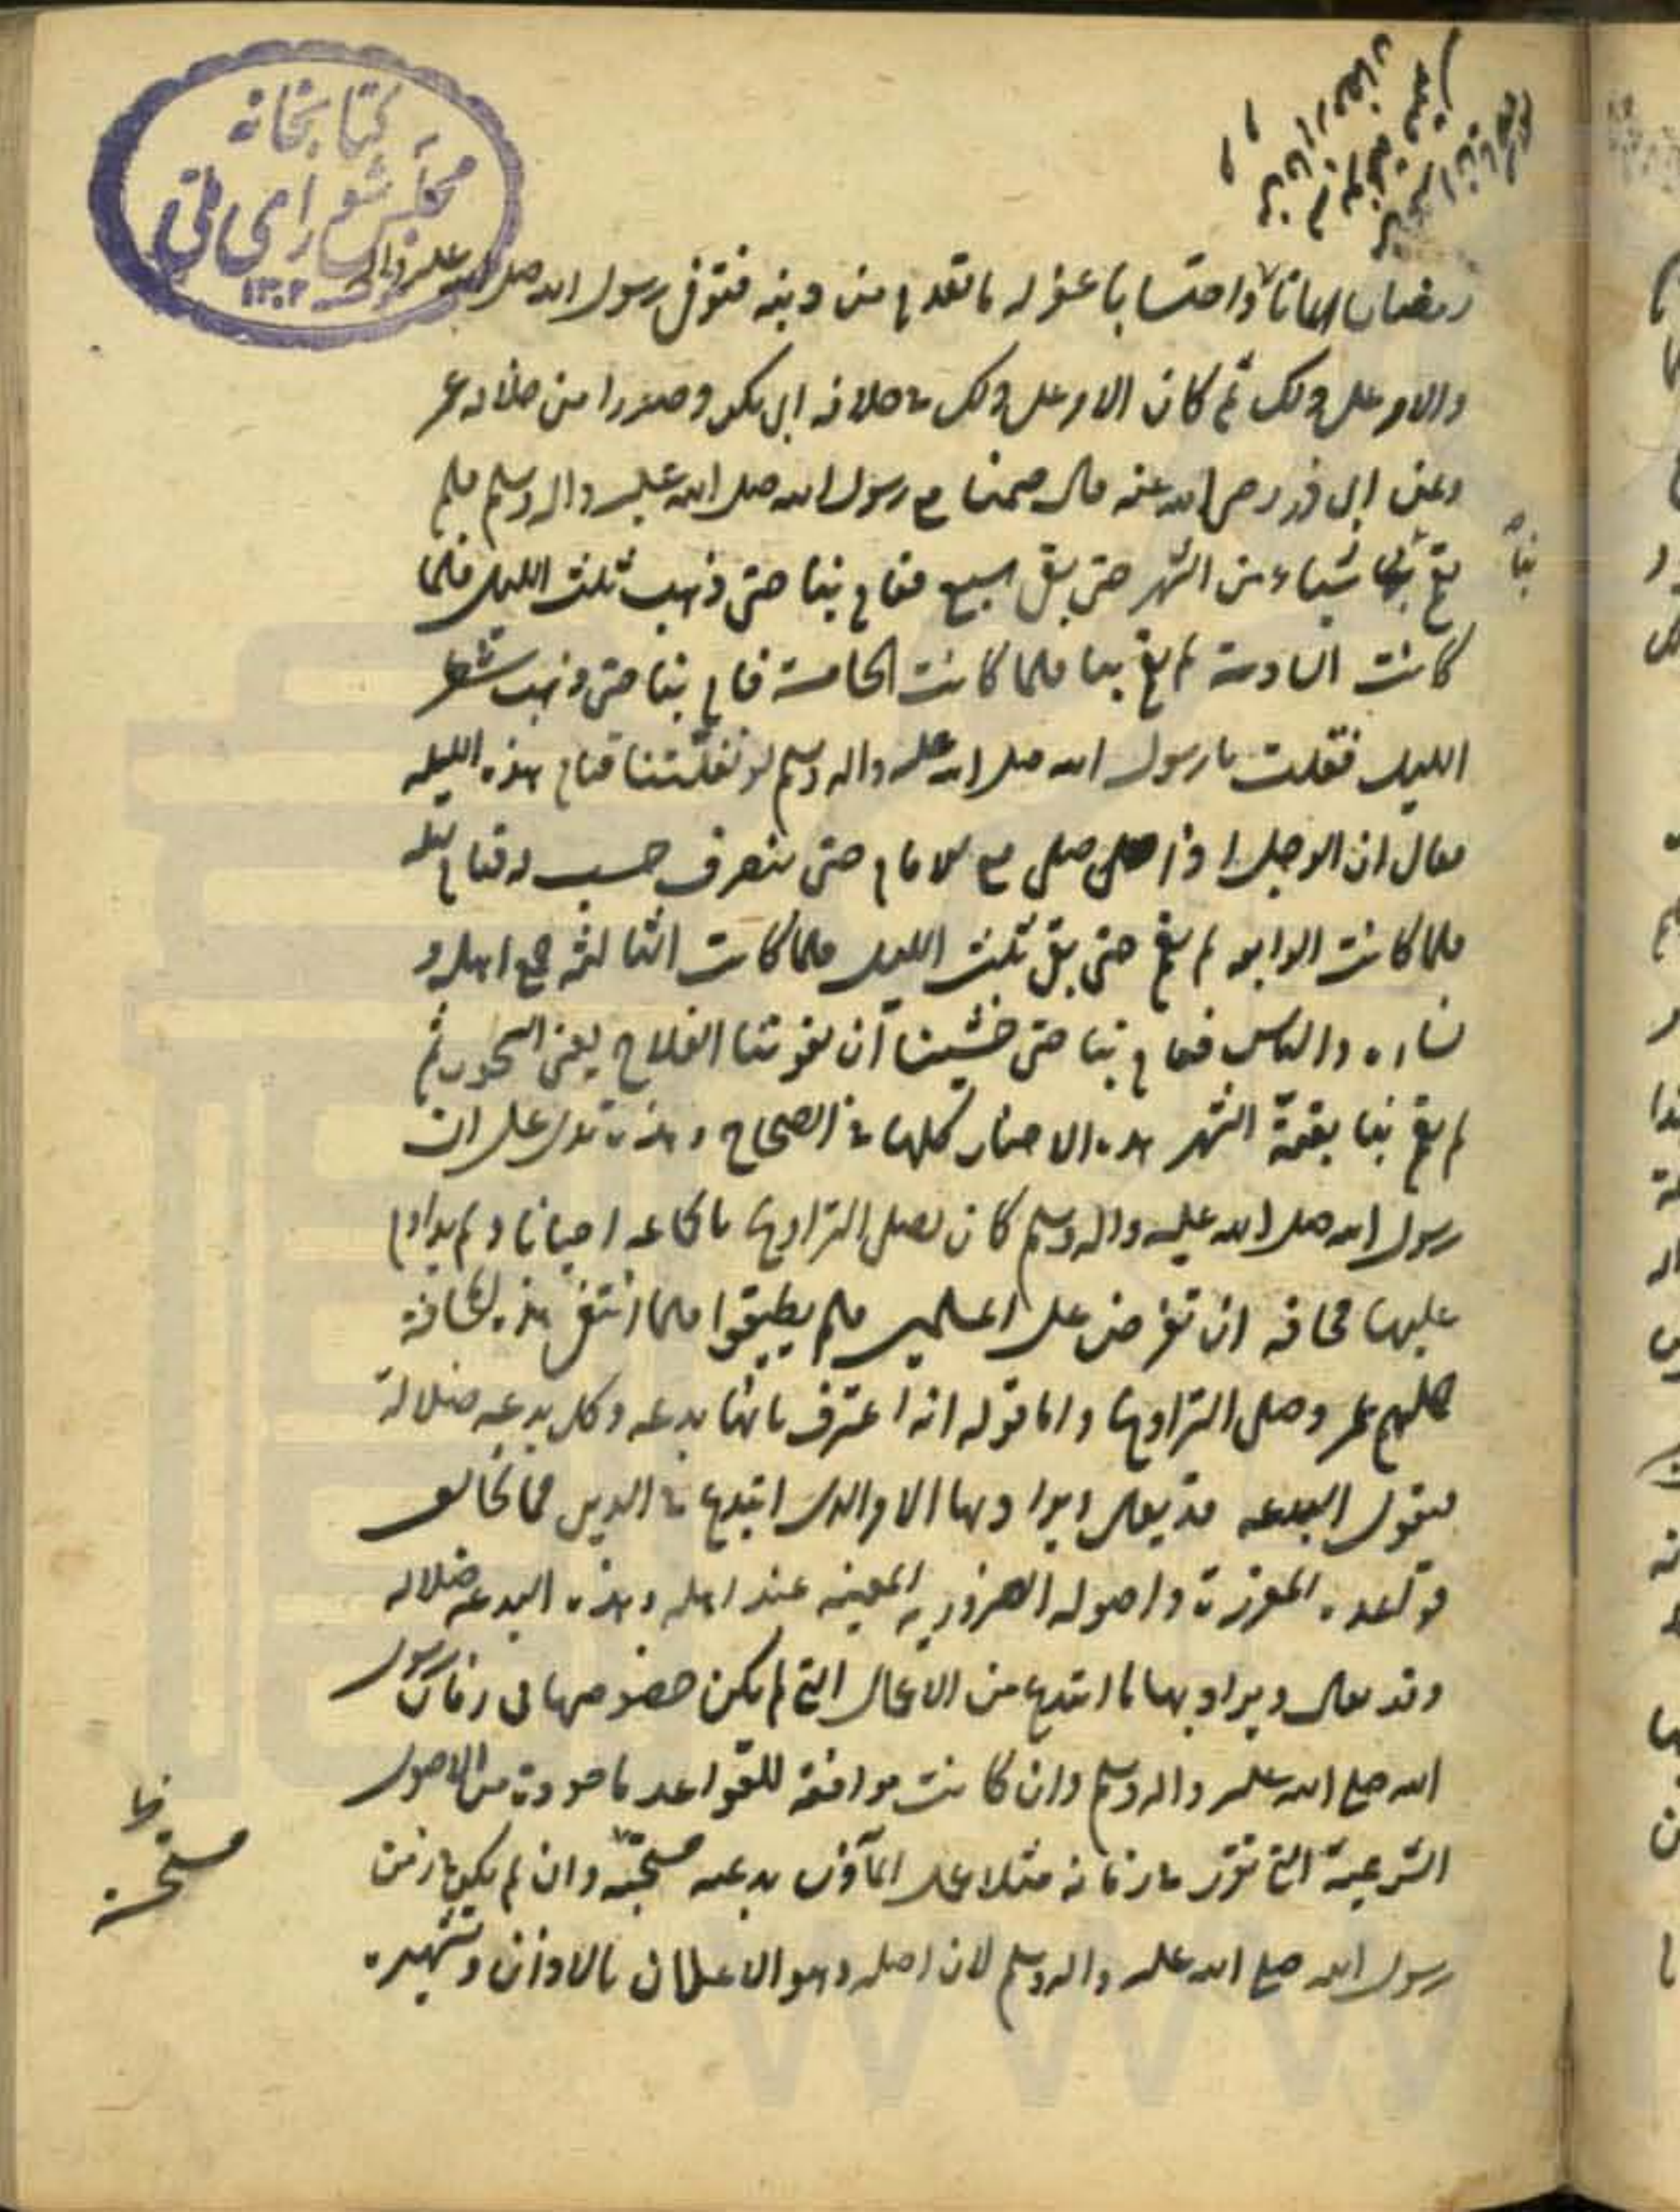 كتابخانه
مجلس شورای ملی
۱۳۰۲
رمضان ايمانا واحتسابا غفر له ما تقدم من ذنبه فتوفى رسول الله صلى الله عليه واله
والامر على ذلك ثم كان الامر على ذلك في خلافه ابى بكر وصدرا من خلافه عمر
وعن ابى ذر رضى الله عنه قال صمنا مع رسول الله صلى الله عليه واله وسلم فلم
يقم بنا شياء من الشهر حتى بقى سبع فقام بنا حتى ذهب ثلث الليل فلما
بنا
كانت السادسة لم يقم بنا فلما كانت الخامسة قام بنا حتى ذهب شطر
الليل فقلت يا رسول الله صلى الله عليه واله وسلم لو نفلتنا قيام هذه الليله
فقال ان الرجل اذا صلى مع الامام حتى ينصرف حسب له قيام ليله
فلما كانت الرابعه لم يقم حتى بقى ثلث الليل فلما كانت الثالثه جمع اهله و
نساءه والناس فقام بنا حتى خشينا ان يفوتنا الفلاح يعنى السحور ثم
لم يقم بنا بقية الشهر هذه الاخبار كلها في الصحاح وهذه تدل على ان
رسول الله صلى الله عليه واله وسلم كان يصلى التراويح بالجماعه احيانا ولم يداوم
عليها مخافه ان تفرض على المسلمين فلم يطيقوا فلما انتفى هذه المخافة
جمعهم عمر وصلى التراويح واما قوله انه اعترف بانها بدعه وكل بدعه ضلالة
فنقول البدعه قد يقال ويراد بها الامر الذى ابتدع في الدين مما يخالف
قواعده المقررة واصوله الضروريه المعينه عند اهله وهذه البدعه ضلاله
وقد يقال ويراد بها ما ابتدع من الاعمال التى لم يكن خصوصها فى زمان رسول
الله صلع الله عليه واله وسلم وان كانت موافقة للقواعد ماخوذة من الاصول
الشرعية التى تقرر في زمانه مثلا عمل المآذن بدعه مستحبّه وان لم يكن في زمن
مستحسنة
رسول الله صلع الله عليه واله وسلم لان اصله وهو الاعلان بالاذان وتشهيره